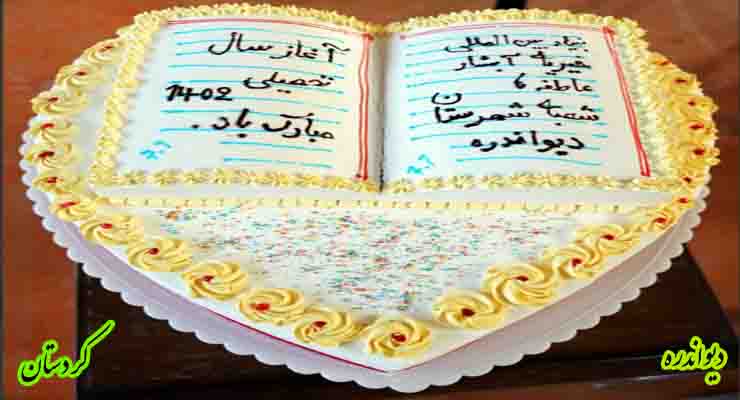 بنیاد بین المللی
خیریه آبشار
عاطفه ها
شعبه شهرستان
دیواندره
آغاز سال
تحصیلی
1402
مبارک باد.
کردستان
دیواندره